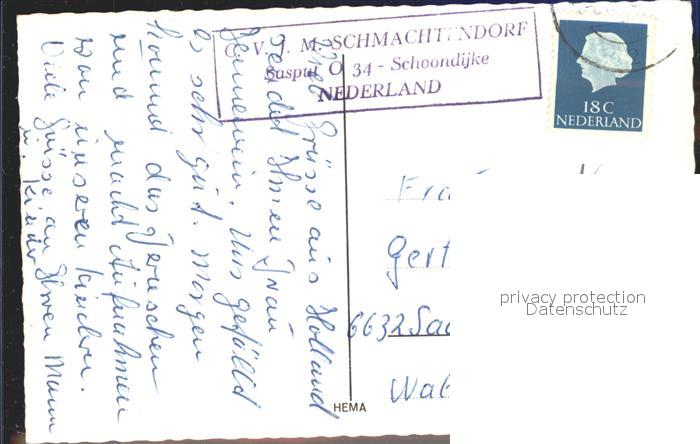 C. V. J. M. SCHMACHTENDORF
Saspul O 34 - Schoondijke
NEDERLAND
18 C
NEDERLAND
Grüsse aus Holland
sendet Ihnen Frau
Uns gefällt
es sehr gut. Morgen
kommt das Fernsehen
und macht Aufnahmen
von unseren Kindern.
Viele Grüsse an Ihren Mann
u. Kinder
Fra
Gert
6632 Saa
HEMA
privacy protection
Datenschutz